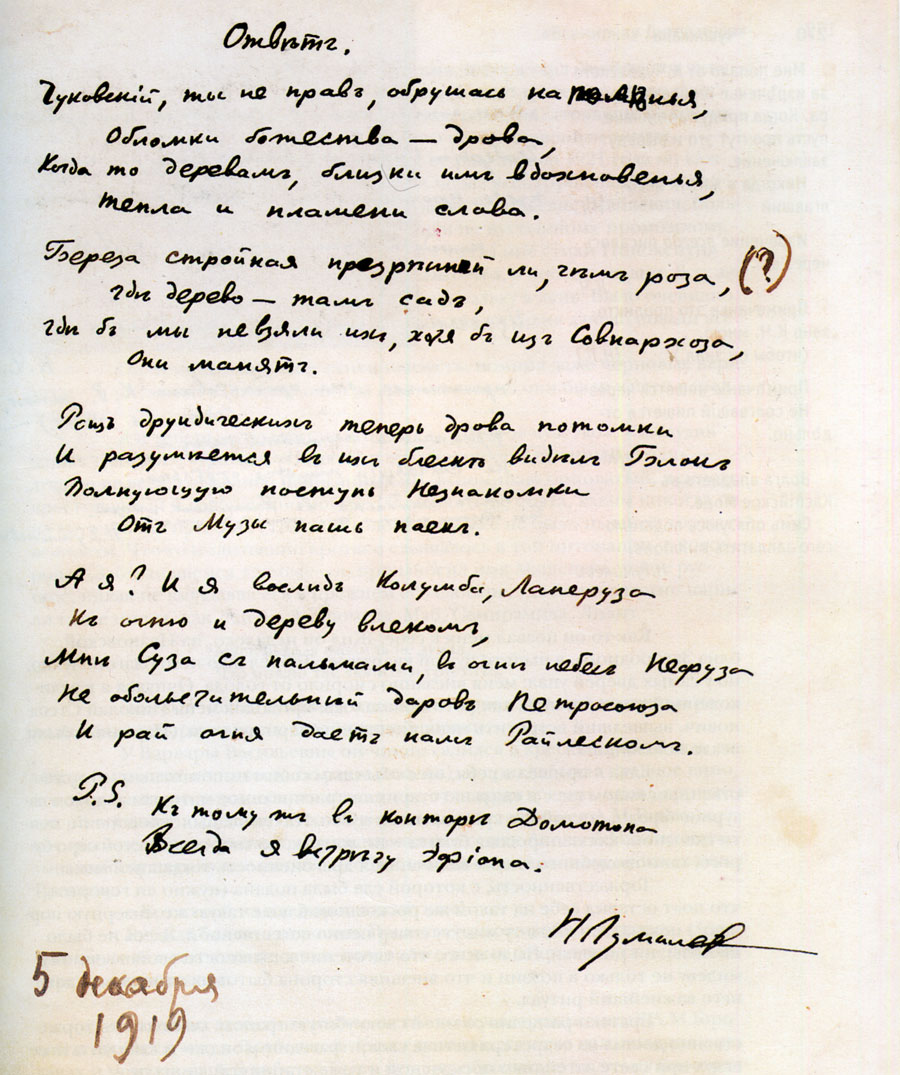 Отвѣтъ.
Чуковскій, ты не правъ, обрушась на поленья,
Обломки божества — дрова,
Когда то деревамъ, близки имъ вдохновенья,
Тепла и пламени слова.
Береза стройная презрѣнней ли, чѣмъ роза, (?)
Гдѣ дерево — тамъ садъ,
Гдѣ бъ мы не взяли ихъ, хотя бъ изъ Совнархоза,
Они манятъ.
Рощъ друидическихъ теперь дрова потомки
И разумѣется въ ихъ блескѣ видѣлъ Блокъ
Волнующую поступь Незнакомки
Отъ Музы нашъ паекъ.
А я? И я вослѣдъ Колумба, Лаперуза
Къ огню и дереву влекомъ,
Мнѣ Суза съ пальмами, въ огнѣ небесъ Нефуза
Не обольстительнѣй даровъ Петросоюза
И рай огня даетъ намъ Райлескомъ.
P.S. Къ тому жъ въ конторѣ Домотопа
Всегда я встрѣчу Эфіопа.
Н Гумилев
5 декабря
1919